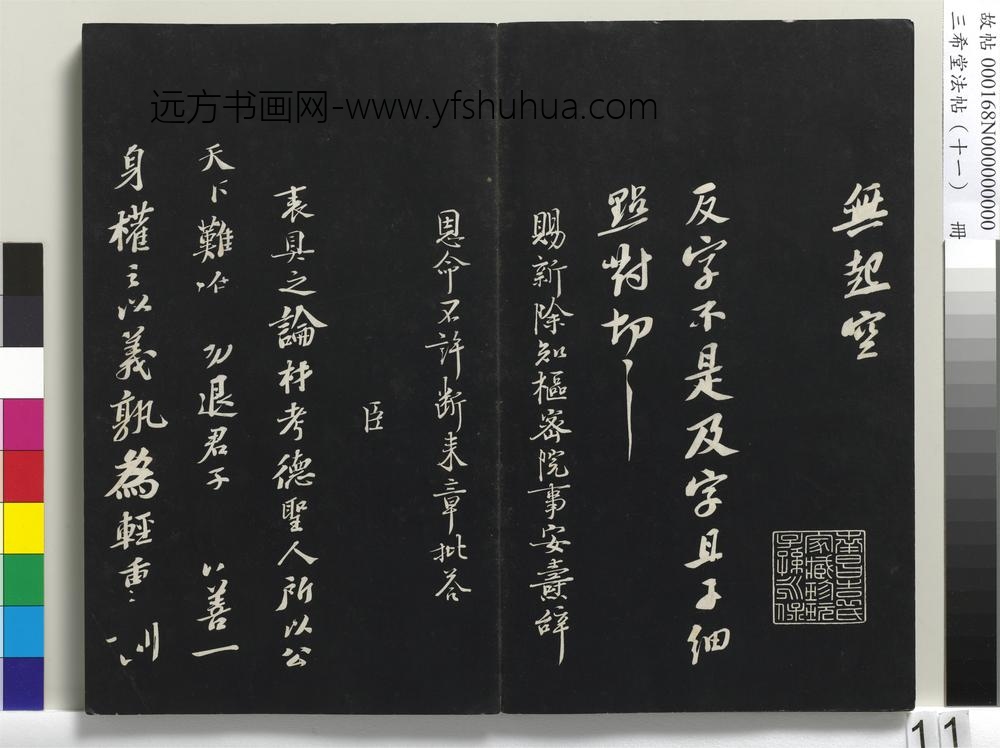 無起空
反字不是及字且子細
點對切〻
賜新除知樞密院事安燾辭
恩命不許斷來章批荅
臣
表具之論材考德聖人所以公
天下難 退君子 善一
身權之以義孰為輕重
远方书画网-www.yfshuhua.com
故帖 000168N000000000
三希堂法帖（十一） 冊
11